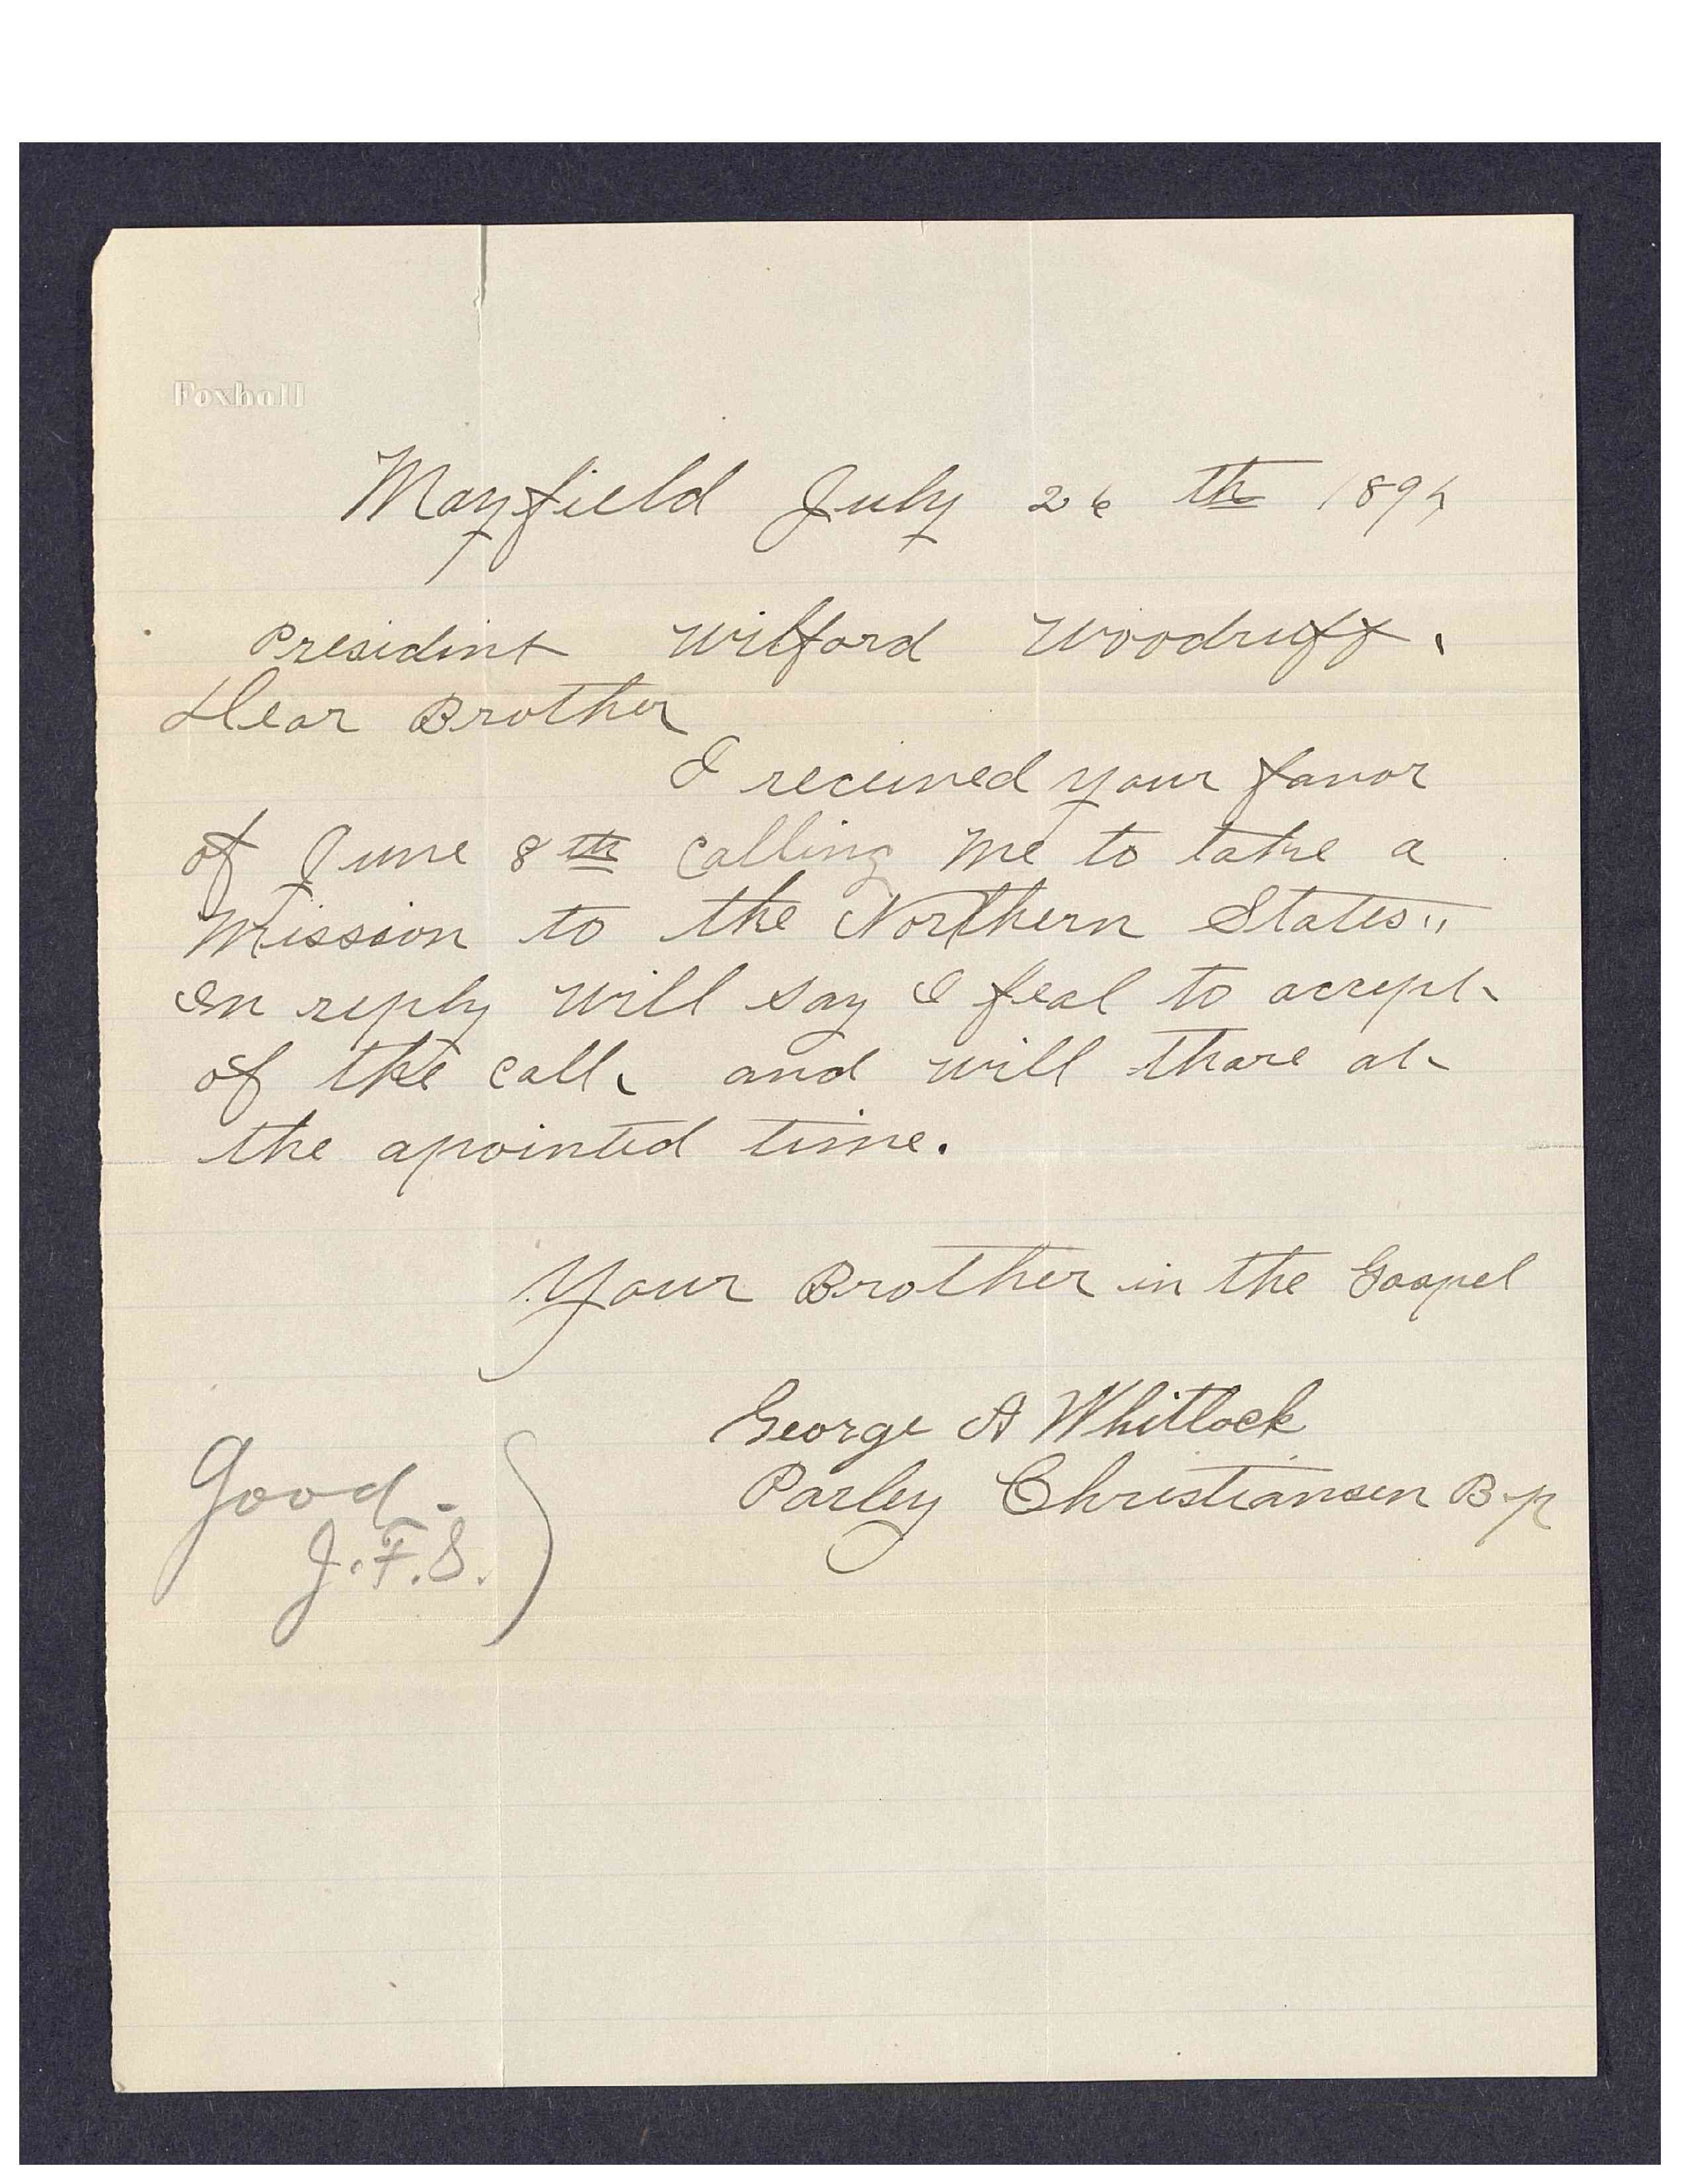 Foxhall
Mayfield July 26 th 1897
Presidint Wilford Woodruff.
Dear Brother
I received your favor
of June 8th calling me to take a
Mission to the Northern States"
In reply will say I feal to accept
of the call, and will thare at
the apointed time.
Your Brother in the Gospel
George A Whitlock
Parley Christiansen Bp
Good.
J.F.S.